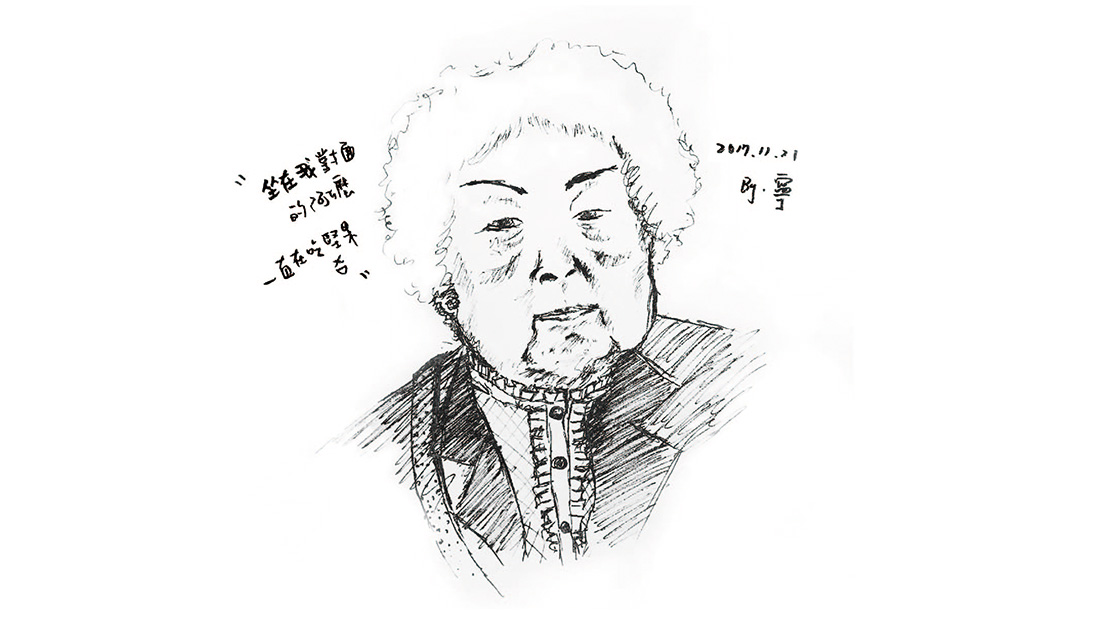 "坐在我對面
的阿嬤
一直在吃堅果
占"
2017.11.21
By.寧